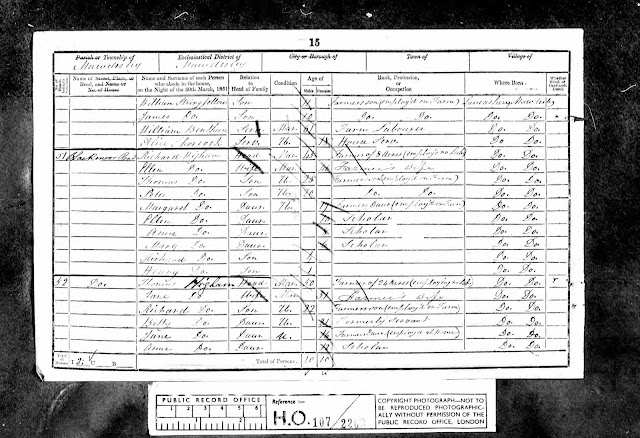 15
Parish or Township of Ecclesiastical District of City or Borough of Town of Village of
Mawdesley Mawdesley
Name of Street, Place, or Road, and Name or No. of House
Name and Surname of each Person who abode in the house, on the Night of the 30th March, 1851
Relation to Head of Family
Condition
Age of
Males Females
Rank, Profession, or Occupation
Where Born
Whether Blind, or Deaf-and-Dumb
William Son Farmers son (employd on Farm) Lancashire Mawdesley
James Do. Son 10 Do. Do. Do. Do.
William Serv Mar Farm Labourer Do. Do.
Serv. House Serv. Do. Do.
51 Richard Higham Head Mar Farmer of 8 Acres Do. Do.
Ellen Do. Wife Mar Farmer's Wife Do. Do.
Thomas Do. Son Farmers son (employd on Farm) Do. Do.
Peter Do. Son Do. Do. Do. Do.
Margaret Do. Daur Farmers Daur (employd on Farm) Do. Do.
Ellen Do. Daur Scholar Do. Do.
Anne Do. Daur Scholar Do. Do.
Mary Do. Daur Scholar Do. Do.
Richard Do. Son Do. Do.
Henry Do. Son Do. Do.
52 Do. Thomas Higham Head Mar 50 Farmer of 24 Acres Do. Do.
Jane Do. Wife Mar Farmer's Wife Do. Do.
Richard Do. Son 22 Farmers son (employd on Farm) Do. Do.
Betty Do. Daur Formerly Servant Do. Do.
Jane Do. Daur Farmers Daur (employd at Home) Do. Do.
Anne Do. Daur Scholar Do. Do.
Total of Houses I U B Total of Persons 10 10
PUBLIC RECORD OFFICE
1 2 3 4 5 6
Reference :-
H.O. 107/
COPYRIGHT PHOTOGRAPH—NOT TO
BE REPRODUCED PHOTOGRAPHIC-
ALLY WITHOUT PERMISSION OF THE
PUBLIC RECORD OFFICE, LONDON